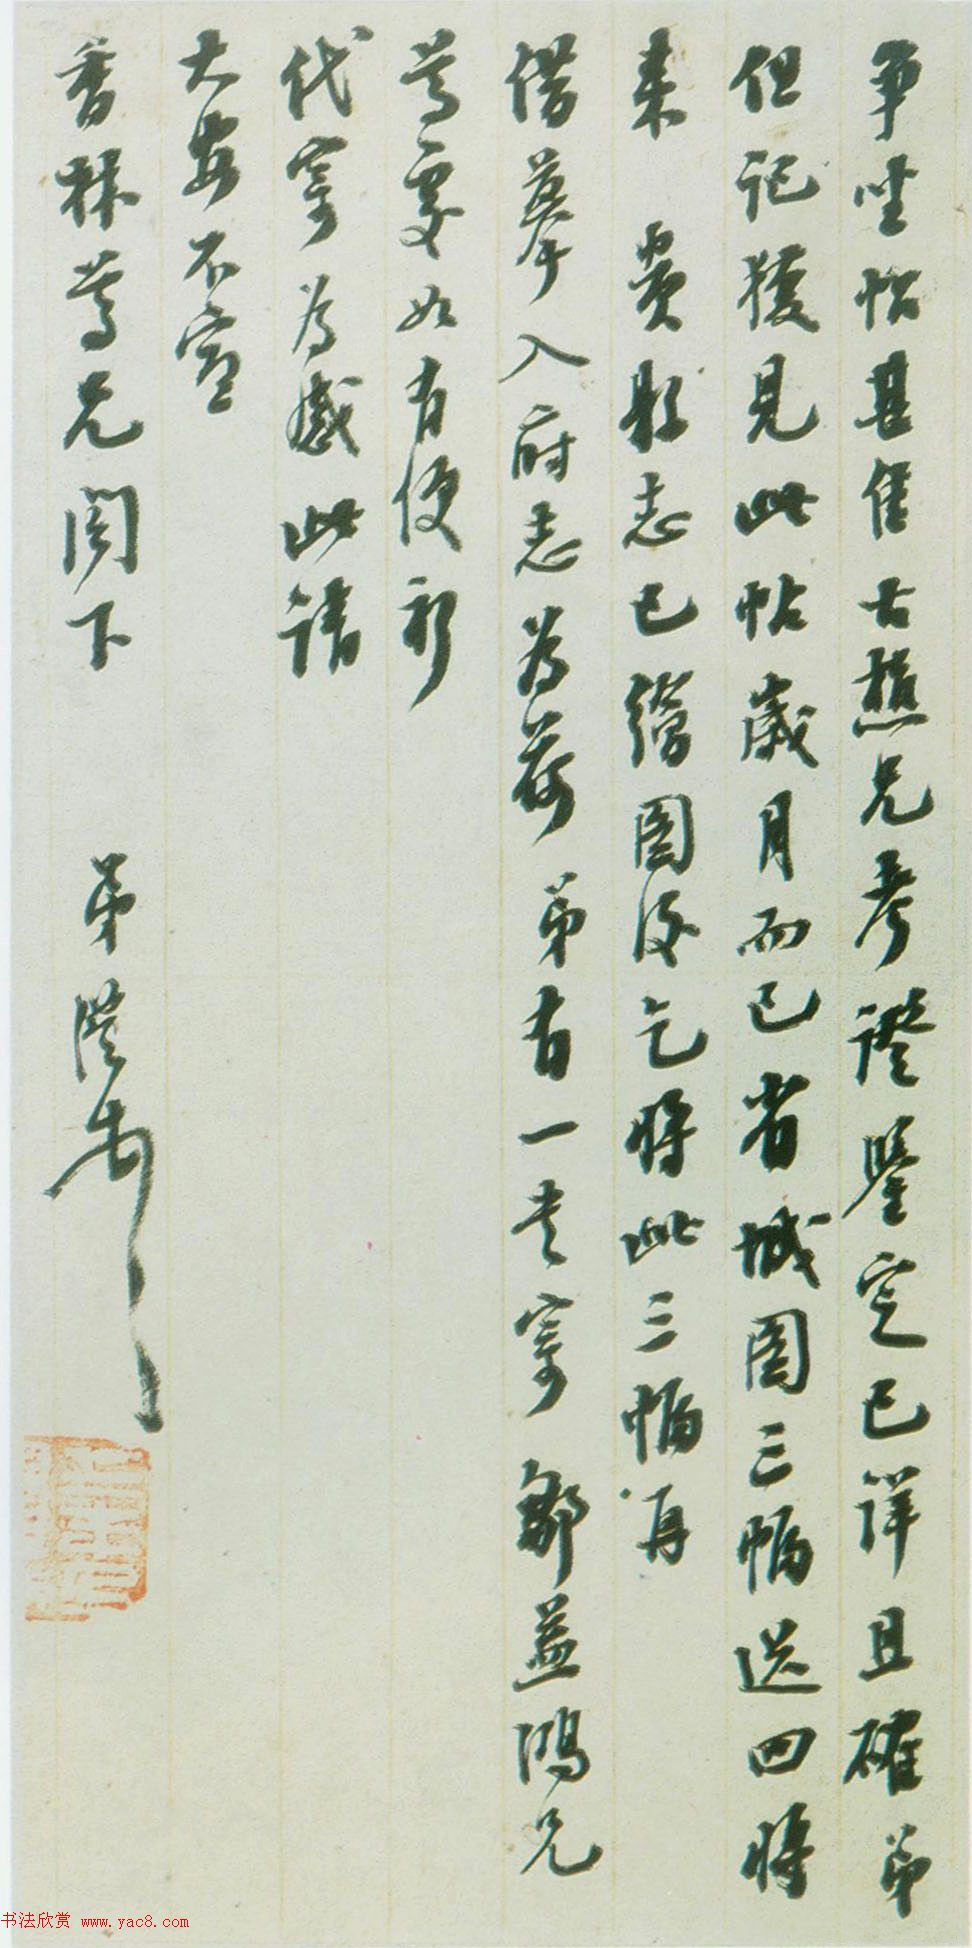 争坐帖甚佳古樵兄考證鑒定已詳且確弟
但記獲見此帖歲月而已省城图三幅送回將
来 貴縣志已繪图後乞將此三幅再
借摹入府志为荷 弟有一夫寄 鄒益鴻兄
尊處如有便祈
代寄为感此請
大安不宣
香林尊兄閣下 弟澧
书法欣赏 www.yac8.com